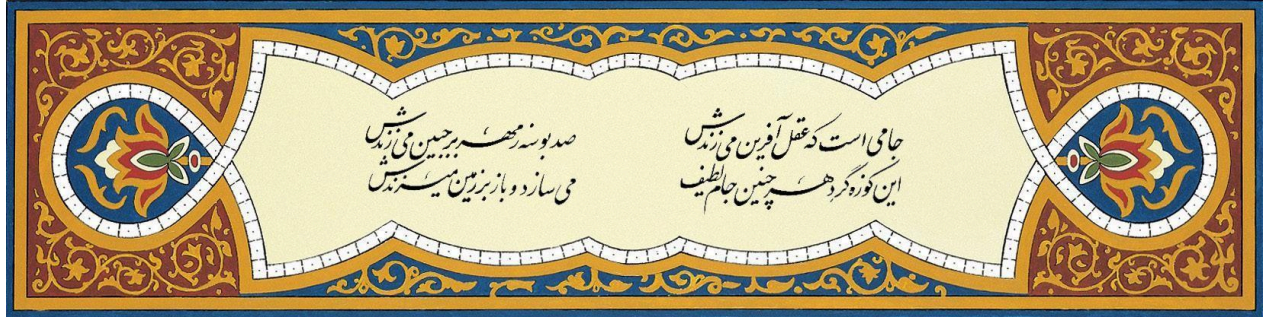 جامی است که عقل آفرین می زندش
صد بوسه ز مهر بر جبین می زندش
این کوزه گر دهر چنین جام لطیف
می سازد و باز بر زمین میزندش